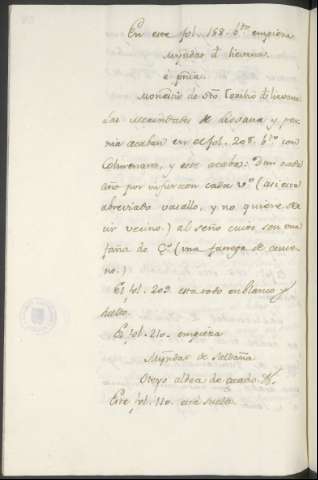 En este fol. 188. bto empieza
Merindat d lievana.
è pnia.
Monesterio de Sto Toribio d lievana
Las Merindades de Lievana y per
nia acaban en el fol. 208. bto con
Colmenares, y este acaba: Dan cada
año por infurcion cada vo (asi esta
abreviado vasallo, y no quiere de
cir vecino.) al señor cuios son una
faña de Ço (una fanega de cente
no.)
El fol. 209. esta todo en blanco y
suelto.
El fol. 210. empieza
Merindat de Saldaña
Oteyo aldea de
Este fol. 210. está suelto.